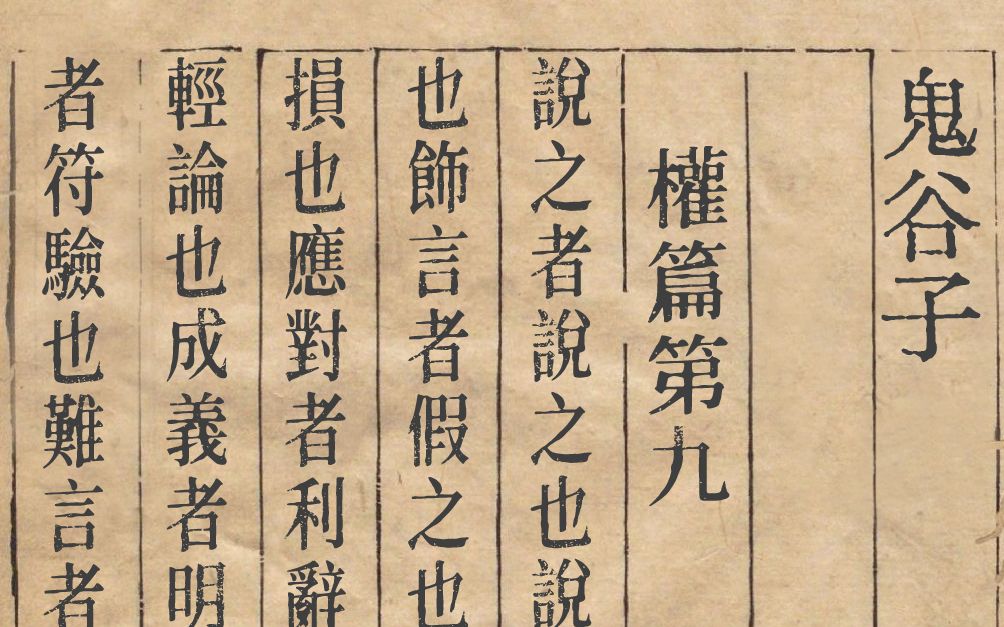 鬼谷子
權篇第九
說之者說之也說
也飾言者假之也
損也應對者利辭
輕論也成義者明
者符驗也難言者